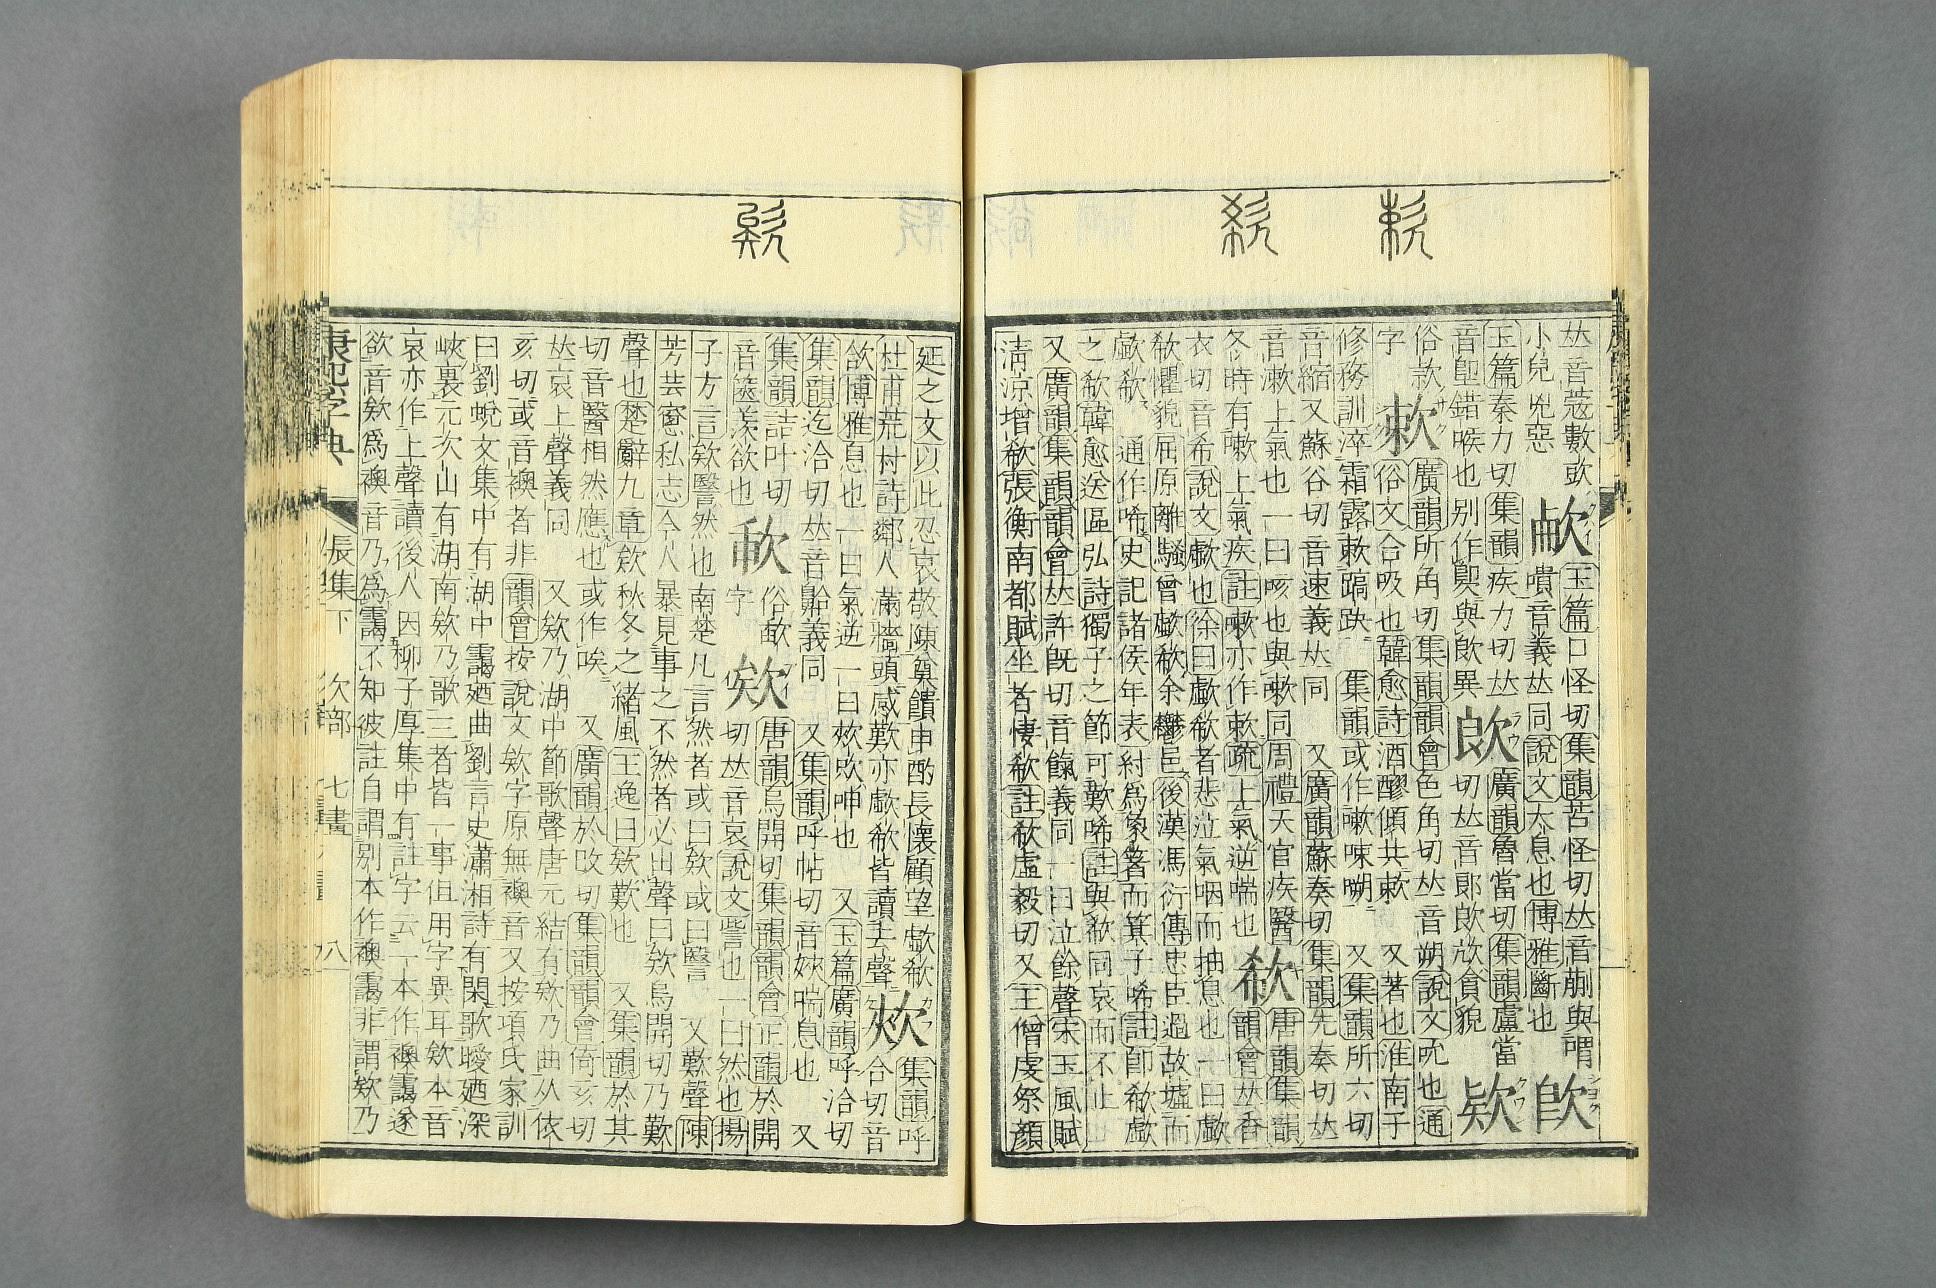 𠀤音蔻數欬 玉篇口怪切集韻苦怪切𠀤音蒯與喟
小兒兇惡 嘳音義𠀤同說文太息也博雅斷也
玉篇秦力切集韻疾力切𠀤 欴 廣韻魯當切集韻盧當
音卽錯喉也別作 與飮異 切𠀤音郎欴欱貪貌
俗款 欶 廣韻所角切集韻韻會色角切𠀤音朔說文吮也通
字 俗文合吸也韓愈詩酒醪傾共欶 又著也淮南子
修務訓淬霜露欶蹻趹 集韻或作嗽 又集韻所六切
音縮又蘇谷切音速義𠀤同 又廣韻蘇奏切集韻先奏切𠀤
音漱上氣也一曰咳也與嗽同周禮天官疾醫 欷 唐韻集韻
冬時有嗽上氣疾註嗽亦作欶疏上氣逆喘也 韻會𠀤香
衣切音希說文歔也徐曰歔欷者悲泣氣咽而抽息也一曰歔
欷懼貌屈原離騷曾歔欷余鬱邑後漢馮衍傳忠臣過故墟而
歔欷 通作唏史記諸侯年表紂爲象箸而箕子唏註卽欷歔
之欷韓愈送區弘詩獨子之節可歎唏註與欷同哀而不止也
又廣韻集韻韻會𠀤許旣切音餼義同一曰泣餘聲宋玉風賦
清涼增欷張衡南都賦坐者悽欷註欷虛毅切又王僧虔祭顏
延之文以此忍哀敬陳奠饋申酌長懷顧望歔欷 集韻呼
杜甫荒村詩鄰人滿牆頭感歎亦歔欷皆讀去聲 合切音
欱博雅息也一曰氣逆一曰 呻也 又玉篇廣韻呼洽切
集韻迄洽切𠀤音 義同 又集韻呼帖切音 喘息也 又
集韻詰叶切 俗 欸 唐韻烏開切集韻韻會正韻於開
音篋羨欲也 字 切𠀤音哀說文訾也一曰然也揚
子方言欸譍然也南楚凡言然者或曰欸或曰譍 又歎聲陳
芳芸窻私志今人暴見事之不然者必出聲曰欸烏開切乃歎
聲也楚辭九章欸秋冬之緖風王逸曰欸歎也 又集韻於其
切音醫相然應也或作唉 又廣韻於改切集韻韻會倚亥切
𠀤哀上聲義同 又欸乃湖中節歌聲唐元結有欸乃曲从依
亥切或音襖者非韻會按說文欸字原無襖音又按項氏家訓
曰劉蛻文集中有湖中靄廼曲劉言史瀟湘詩有閑歌曖廼深
峽裏元次山有湖南欸乃歌三者皆一事但用字異耳欸本音
哀亦作上聲讀後人因柳子厚集中有註字云一本作襖靄遂
欲音欸爲襖音乃爲靄不知彼註自謂別本作襖靄非謂欸乃
康熙字典 辰集下 欠部 七畫 八